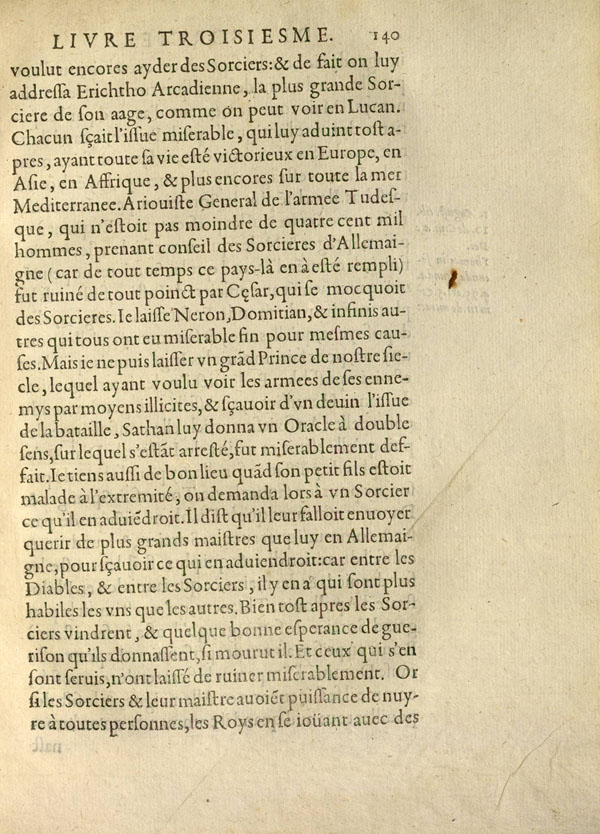 LIVRE TROISIESME. 140
voulut encores ayder des Sorciers: & de fait on luy
addressa Erichtho Arcadienne, la plus grande Sor-
ciere de son aage, comme on peut voir en Lucan.
Chacun sçait l'issue miserable, qui luy aduint tost a-
pres, ayant toute sa vie esté victorieux en Europe, en
Asie, en Affrique, & plus encores sur toute la mer
Mediterranee. Ariouiste General de l'armee Tudes-
que, qui n'estoit pas moindre de quatre cent mil
hommes, prenant conseil des Sorcieres d'Allemai-
gne (car de tout temps ce pays-là en à esté rempli)
fut ruiné de tout poinct par Cęsar, qui se mocquoit
des Sorcieres. Ie laisse Neron, Domitian, & infinis au-
tres qui tous ont eu miserable fin pour mesmes cau-
ses. Mais ie ne puis laisser vn grãd Prince de nostre sie-
cle, lequel ayant voulu voir les armees de ses enne-
mys par moyens illicites, & sçauoir d'vn deuin l'issue
de la bataille, Sathan luy donna vn Oracle à double
sens, sur lequel s'estãt arresté, fut miserablement def-
fait. Ie tiens aussi de bon lieu quãd son petit fils estoit
malade à l'extremité, on demanda lors à vn Sorcier
ce qu'il en aduiẽdroit. Il dist qu'il leur falloit enuoyer
querir de plus grands maistres que luy en Allemai-
gne, pour sçauoir ce qui en aduiendroit: car entre les
Diables, & entre les Sorciers, il y en a qui sont plus
habiles les vns que les autres. Bien tost apres les Sor-
ciers vindrent, & quelque bonne esperance de gue-
rison qu'ils donnassent, si mourut il. Et ceux qui s'en
sont seruis, n'ont laissé de ruiner miserablement. Or
si les Sorciers & leur maistre auoiẽt puissance de nuy-
re à toutes personnes, les Roys en se ioüant auec des